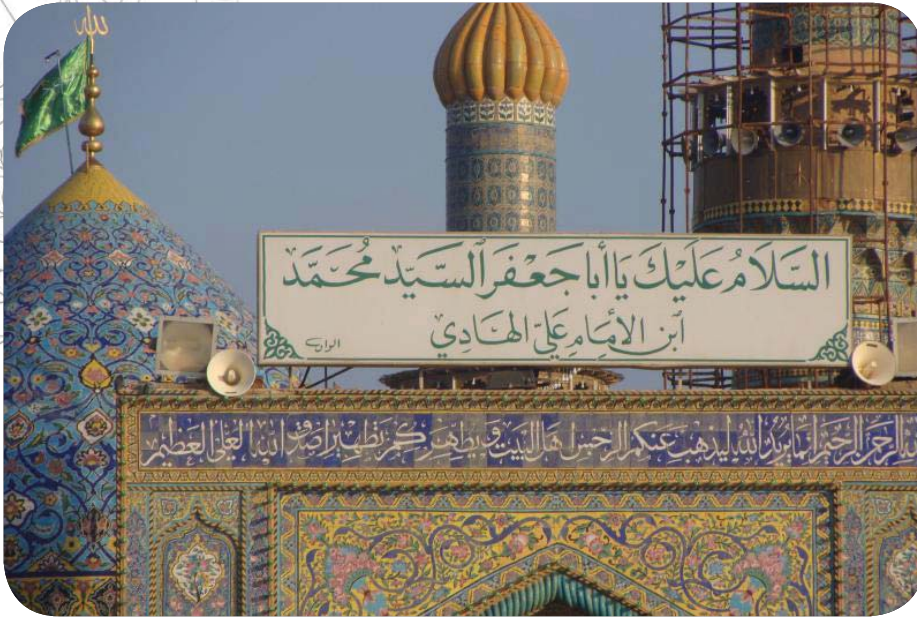 الله
السَّلَامُ عَلَيْكَ يَا أَبَا جَعْفَرِ السَّيِّد مُحَمَّد
ابْنِ الإِمَامِ عَلِيّ الهَادِي
الرحمن الرحيم انما يريد الله ليذهب عنكم الرجس اهل البيت و يطهركم تطهيرا صدق الله العلي العظيم